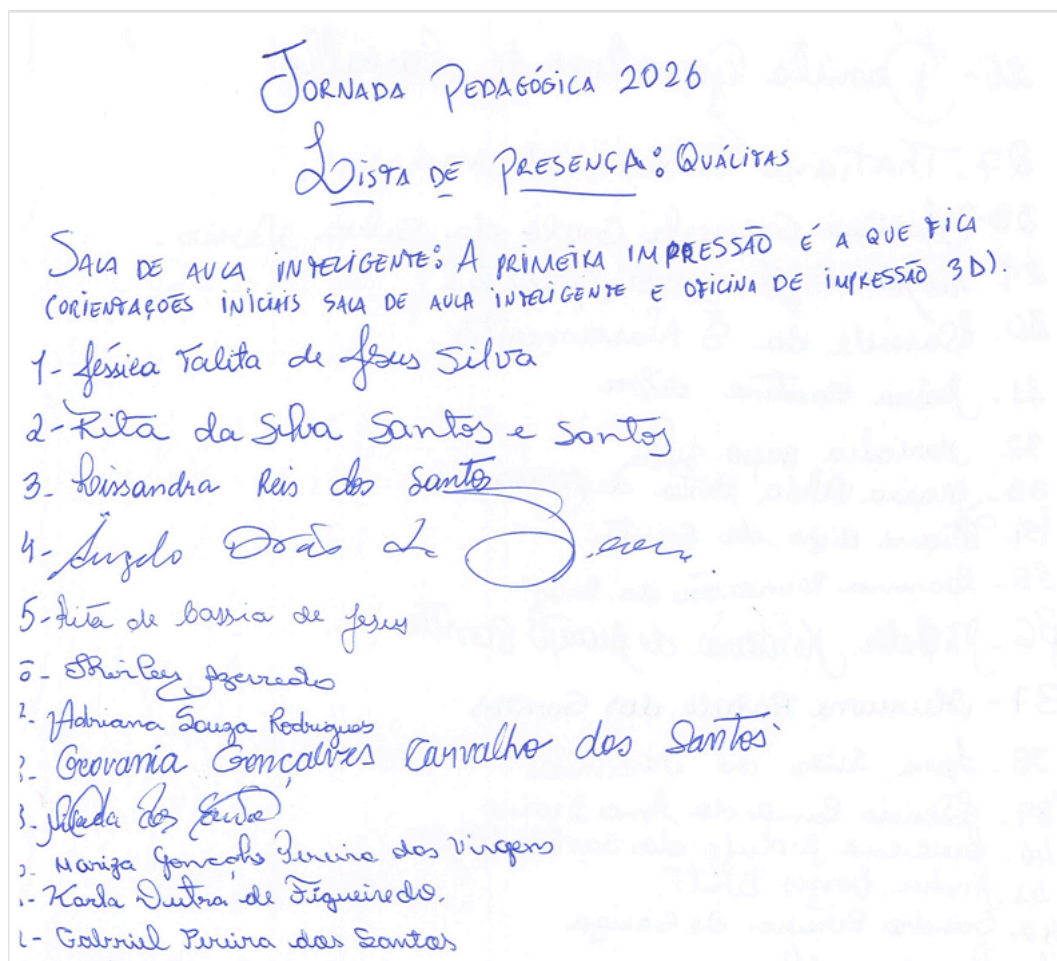 JORNADA PEDAGÓGICA 2026
LISTA DE PRESENÇA: QUÁLITAS
SALA DE AULA INTELIGENTE: A PRIMEIRA IMPRESSÃO É A QUE FICA
(ORIENTAÇÕES INICIAIS SALA DE AULA INTELIGENTE E OFICINA DE IMPRESSÃO 3D).
1- Jéssica Talita de Jesus Silva
2- Rita da Silva Santos e Santos
3- Lissandra Reis dos Santos
4- Ângelo
5- Rita de Cassia de Jesus
- Shirley Azevedo
- Adriana Souza Rodrigues
- Geovania Gonçalves Carvalho dos Santos
- dos
- Mariza Gonçalves Pereira das Virgens
- Karla Dutra de Figueiredo.
- Gabriel Pereira dos Santos